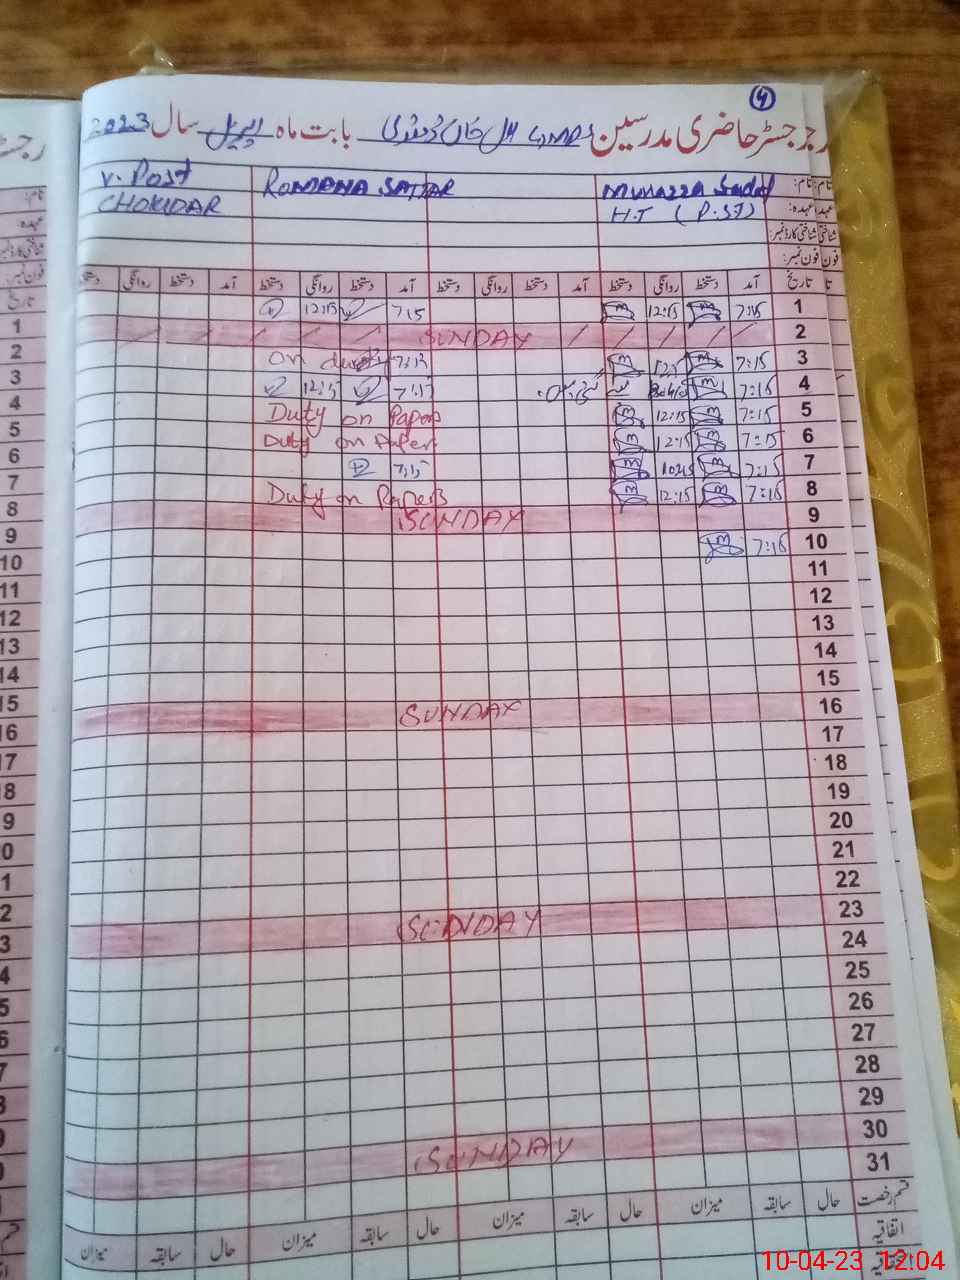 4
رجسٹر حاضری مدرسین GMPS بابت ماہ اپریل سال 2023
نام: Munazza Sadaf ROMANA SATTAR V. Post
عہدہ: H.T (P.ST) CHOKIDAR
شناختی کارڈ نمبر:
فون نمبر:
تاریخ آمد دستخط روانگی دستخط آمد دستخط روانگی دستخط آمد دستخط روانگی دستخط آمد دستخط روانگی دستخط
1 7:15 12:15 7:15 12:15
2 SUNDAY
3 7:15 12:15 7:15 on duty
4 7:15 7:15 12:15
5 7:15 12:15 Duty on Papers
6 7:15 12:15 Duty on Papers
7 7:15 10:45 7:15
8 7:15 12:15 Duty on Papers
9 SUNDAY
10 7:15
11
12
13
14
15
16 SUNDAY
17
18
19
20
21
22
23 SUNDAY
24
25
26
27
28
29
30 SUNDAY
31
قسم رخصت حال سابقہ میزان حال سابقہ میزان حال سابقہ میزان حال سابقہ میزان
اتفاقیہ
10-04-23 12:04